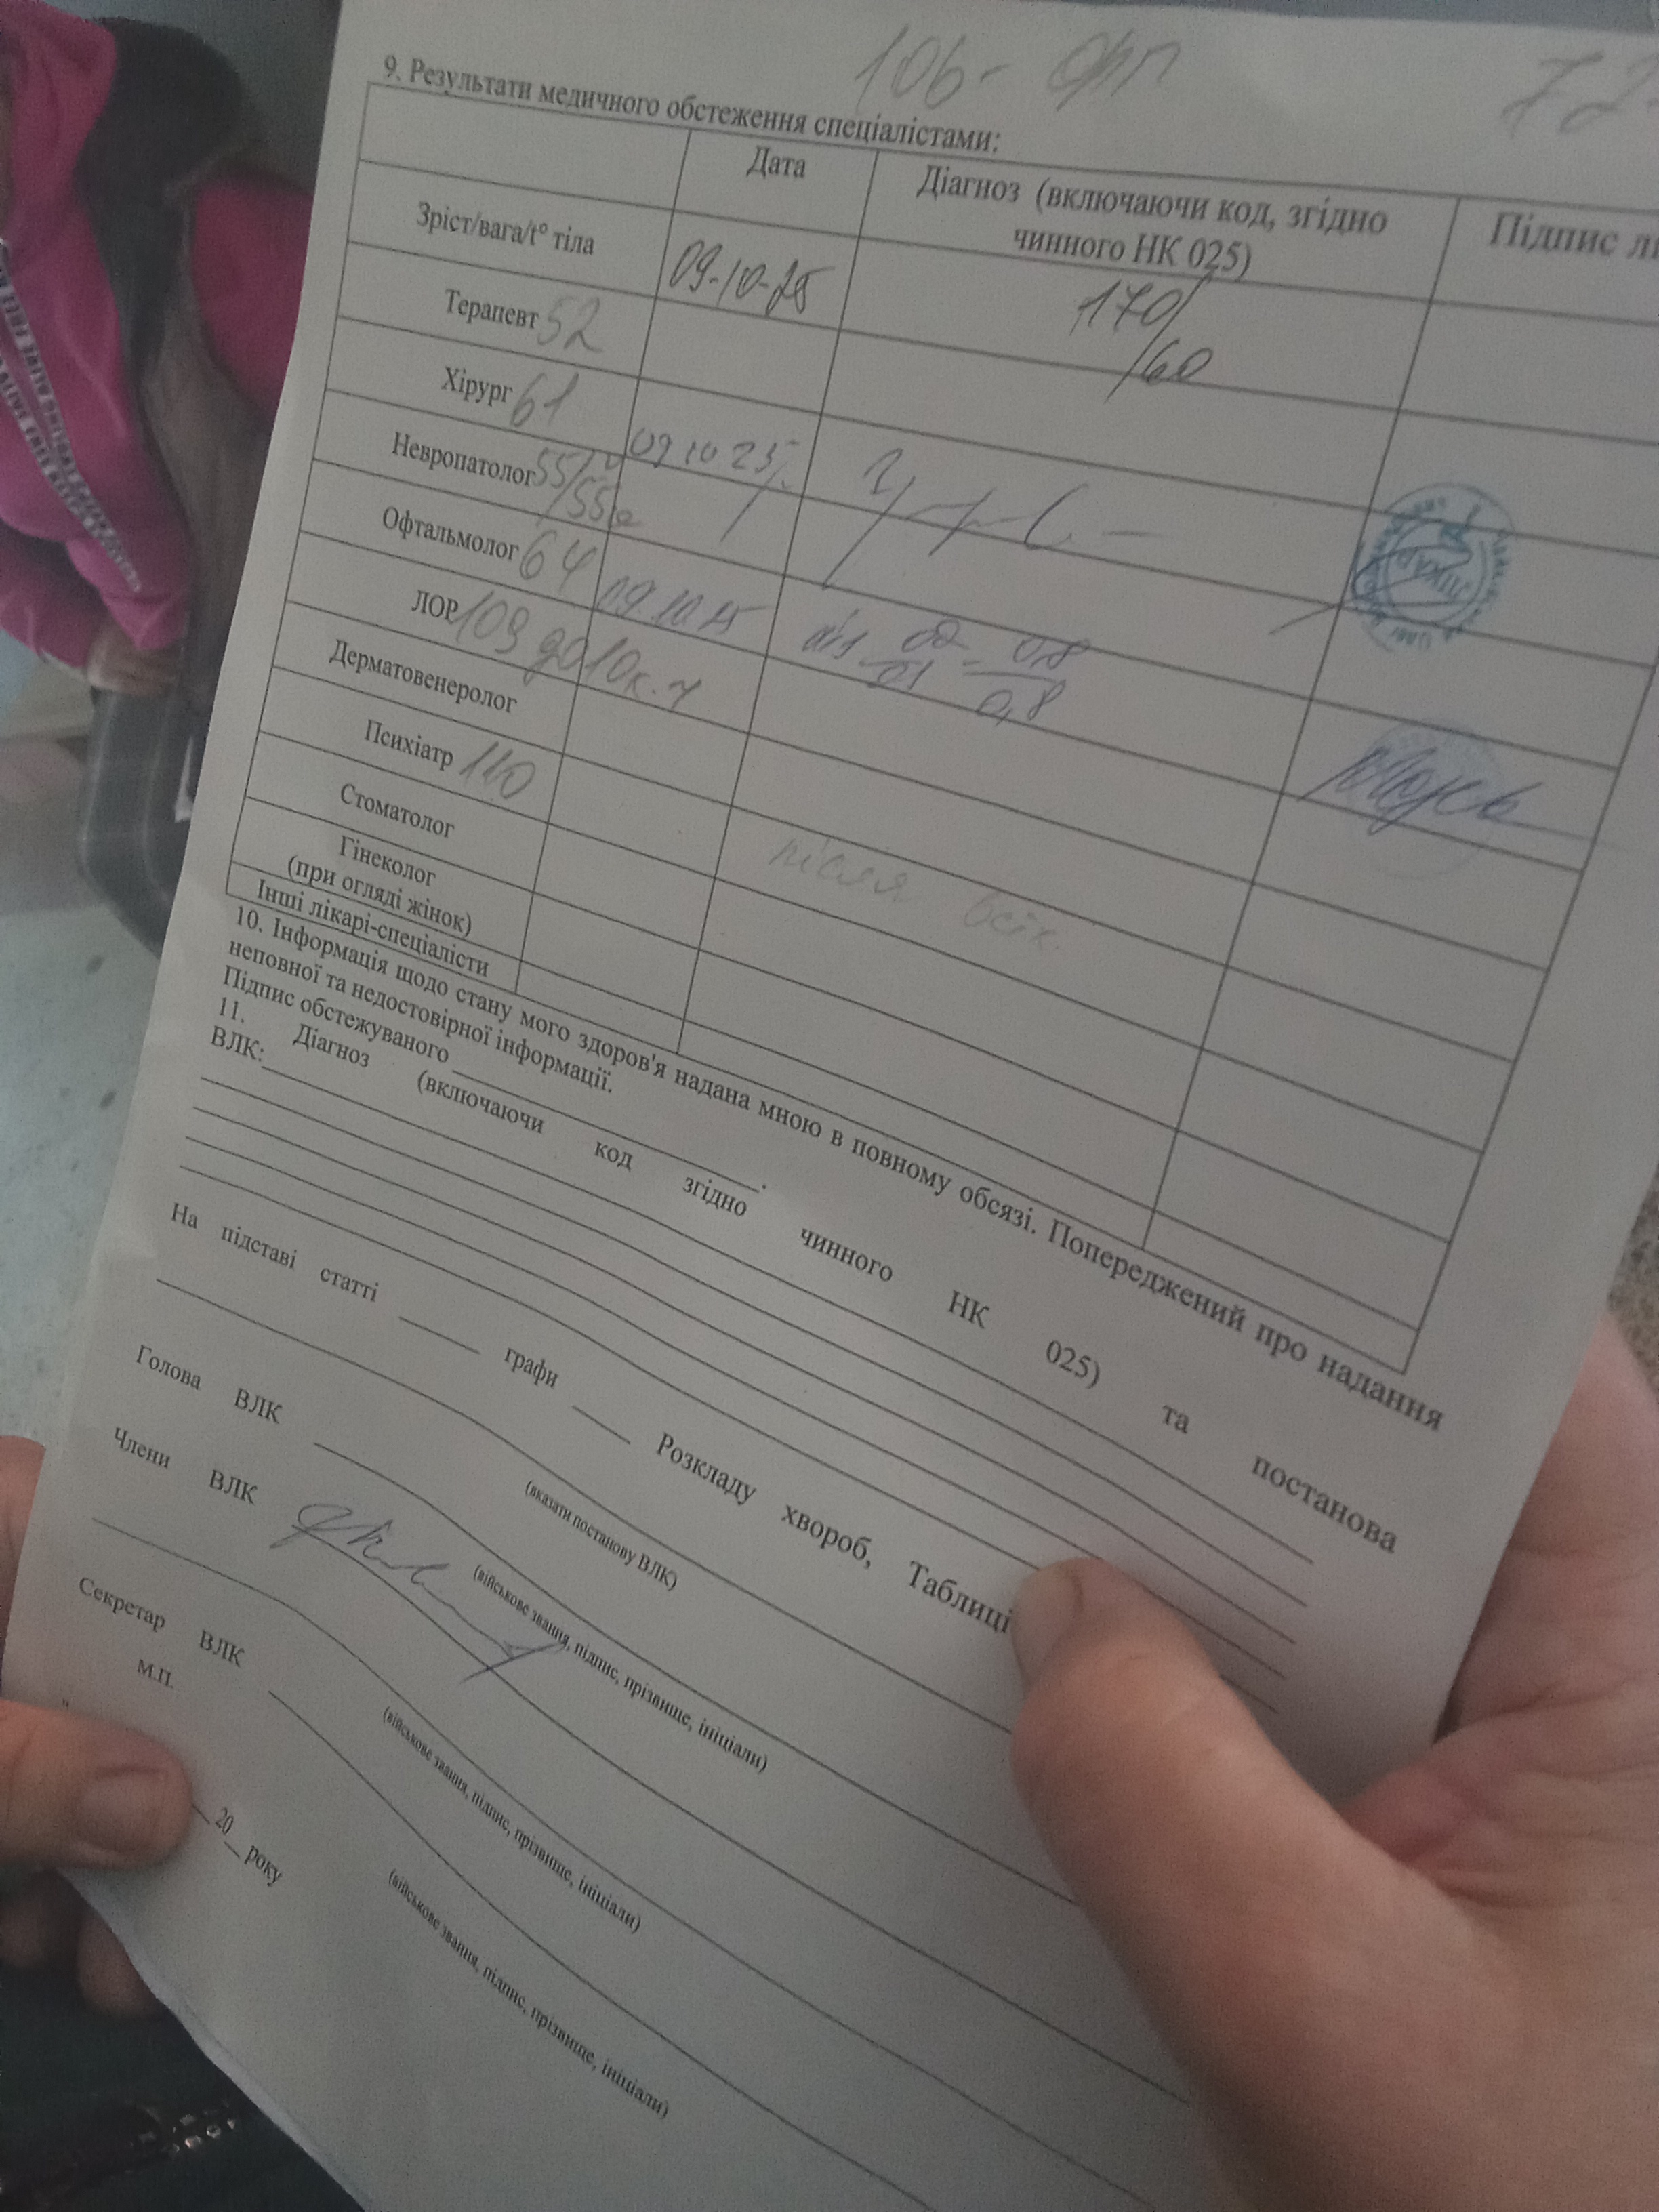 106- фп
9. Результати медичного обстеження спеціалістами:
Дата
Діагноз (включаючи код, згідно
чинного НК 025)
Підпис
Зріст/вага/t° тіла
09-10-25
170/
/60
Терапевт 52
Хірург 61
Невропатолог 55/
/55а
09 10 25
Офтальмолог 64
09 10 25
0,8
0,8
ЛОР 109 до 10 к.
Дерматовенеролог
Психіатр 110
після всіх.
Стоматолог
Гінеколог
(при огляді жінок)
Інші лікарі-спеціалісти
ЛІКАР
10. Інформація щодо стану мого здоров'я надана мною в повному обсязі. Попереджений про надання
неповної та недостовірної інформації.
Підпис обстежуваного
11. Діагноз (включаючи код згідно чинного НК 025) та постанова
ВЛК:
На підставі статті ____ графи ___ Розкладу хвороб, Таблиці
(вказати постанову ВЛК)
Голова ВЛК
(військове звання, підпис, прізвище, ініціали)
Члени ВЛК
(військове звання, підпис, прізвище, ініціали)
Секретар ВЛК
(військове звання, підпис, прізвище, ініціали)
М.П.
20__ року